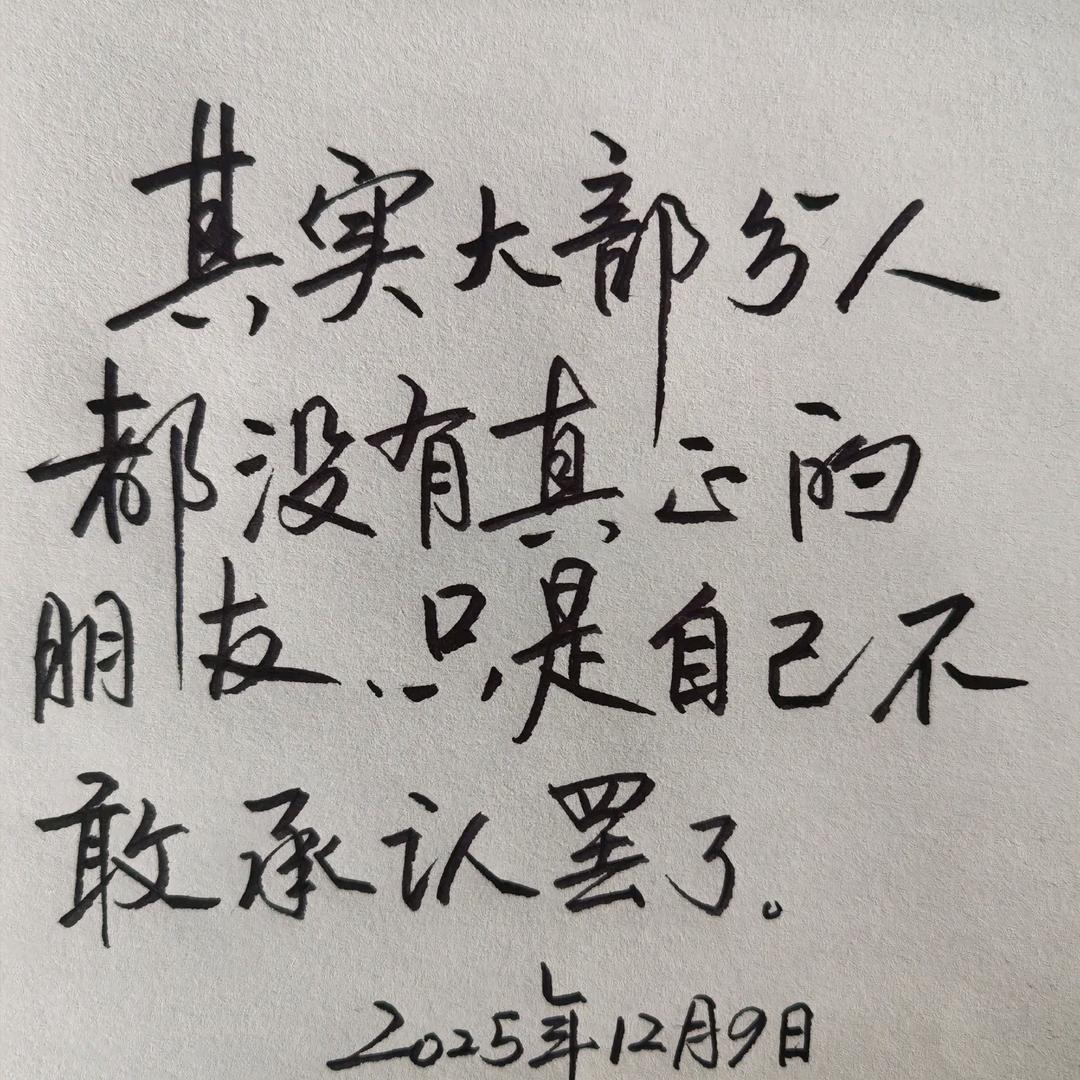 其实大部分人
都没有真正的
朋友、只是自己不
敢承认罢了。
2025年12月9日